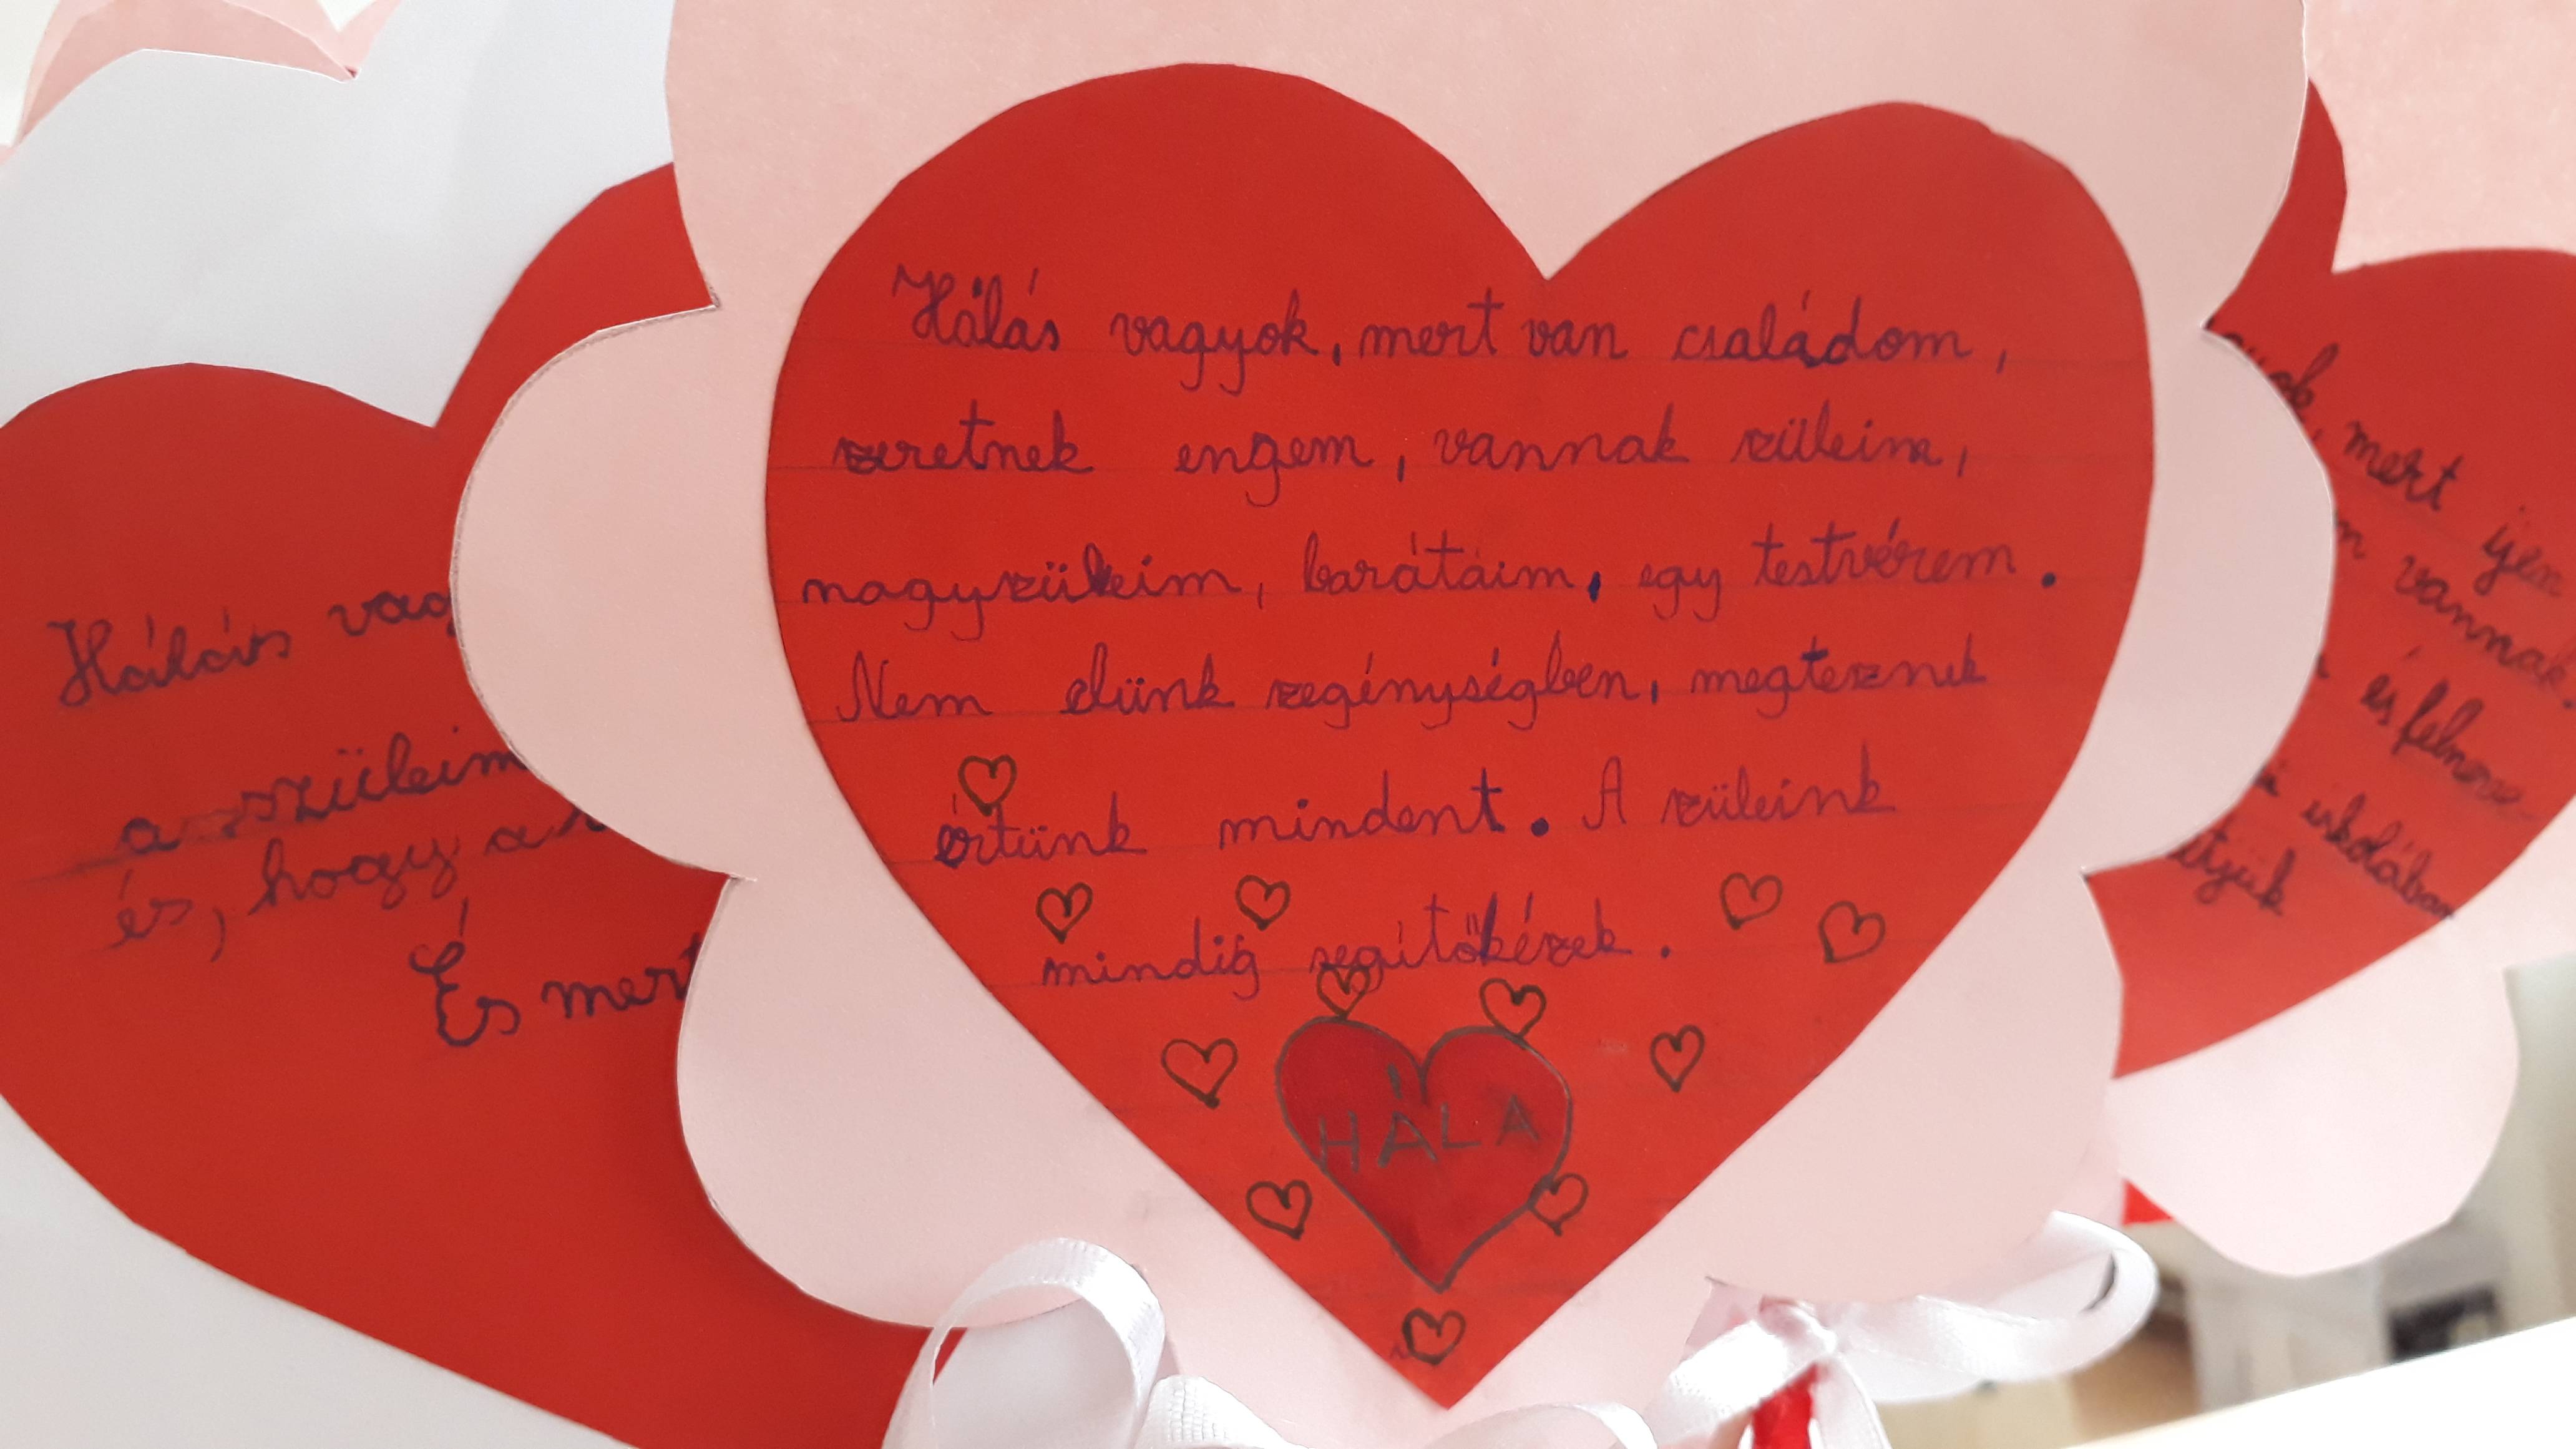 Hálás vagyok, mert van családom,
szeretnek engem, vannak szüleim,
nagyszüleim, barátaim, egy testvérem.
Nem élünk szegénységben, megtesznek
értünk mindent. A szüleink
mindig segítőkészek.
HÁLA
Hálás vag
a szüleim
és, hogy a
És mert
mert ijen
vannak.
és felmre-
iskolában